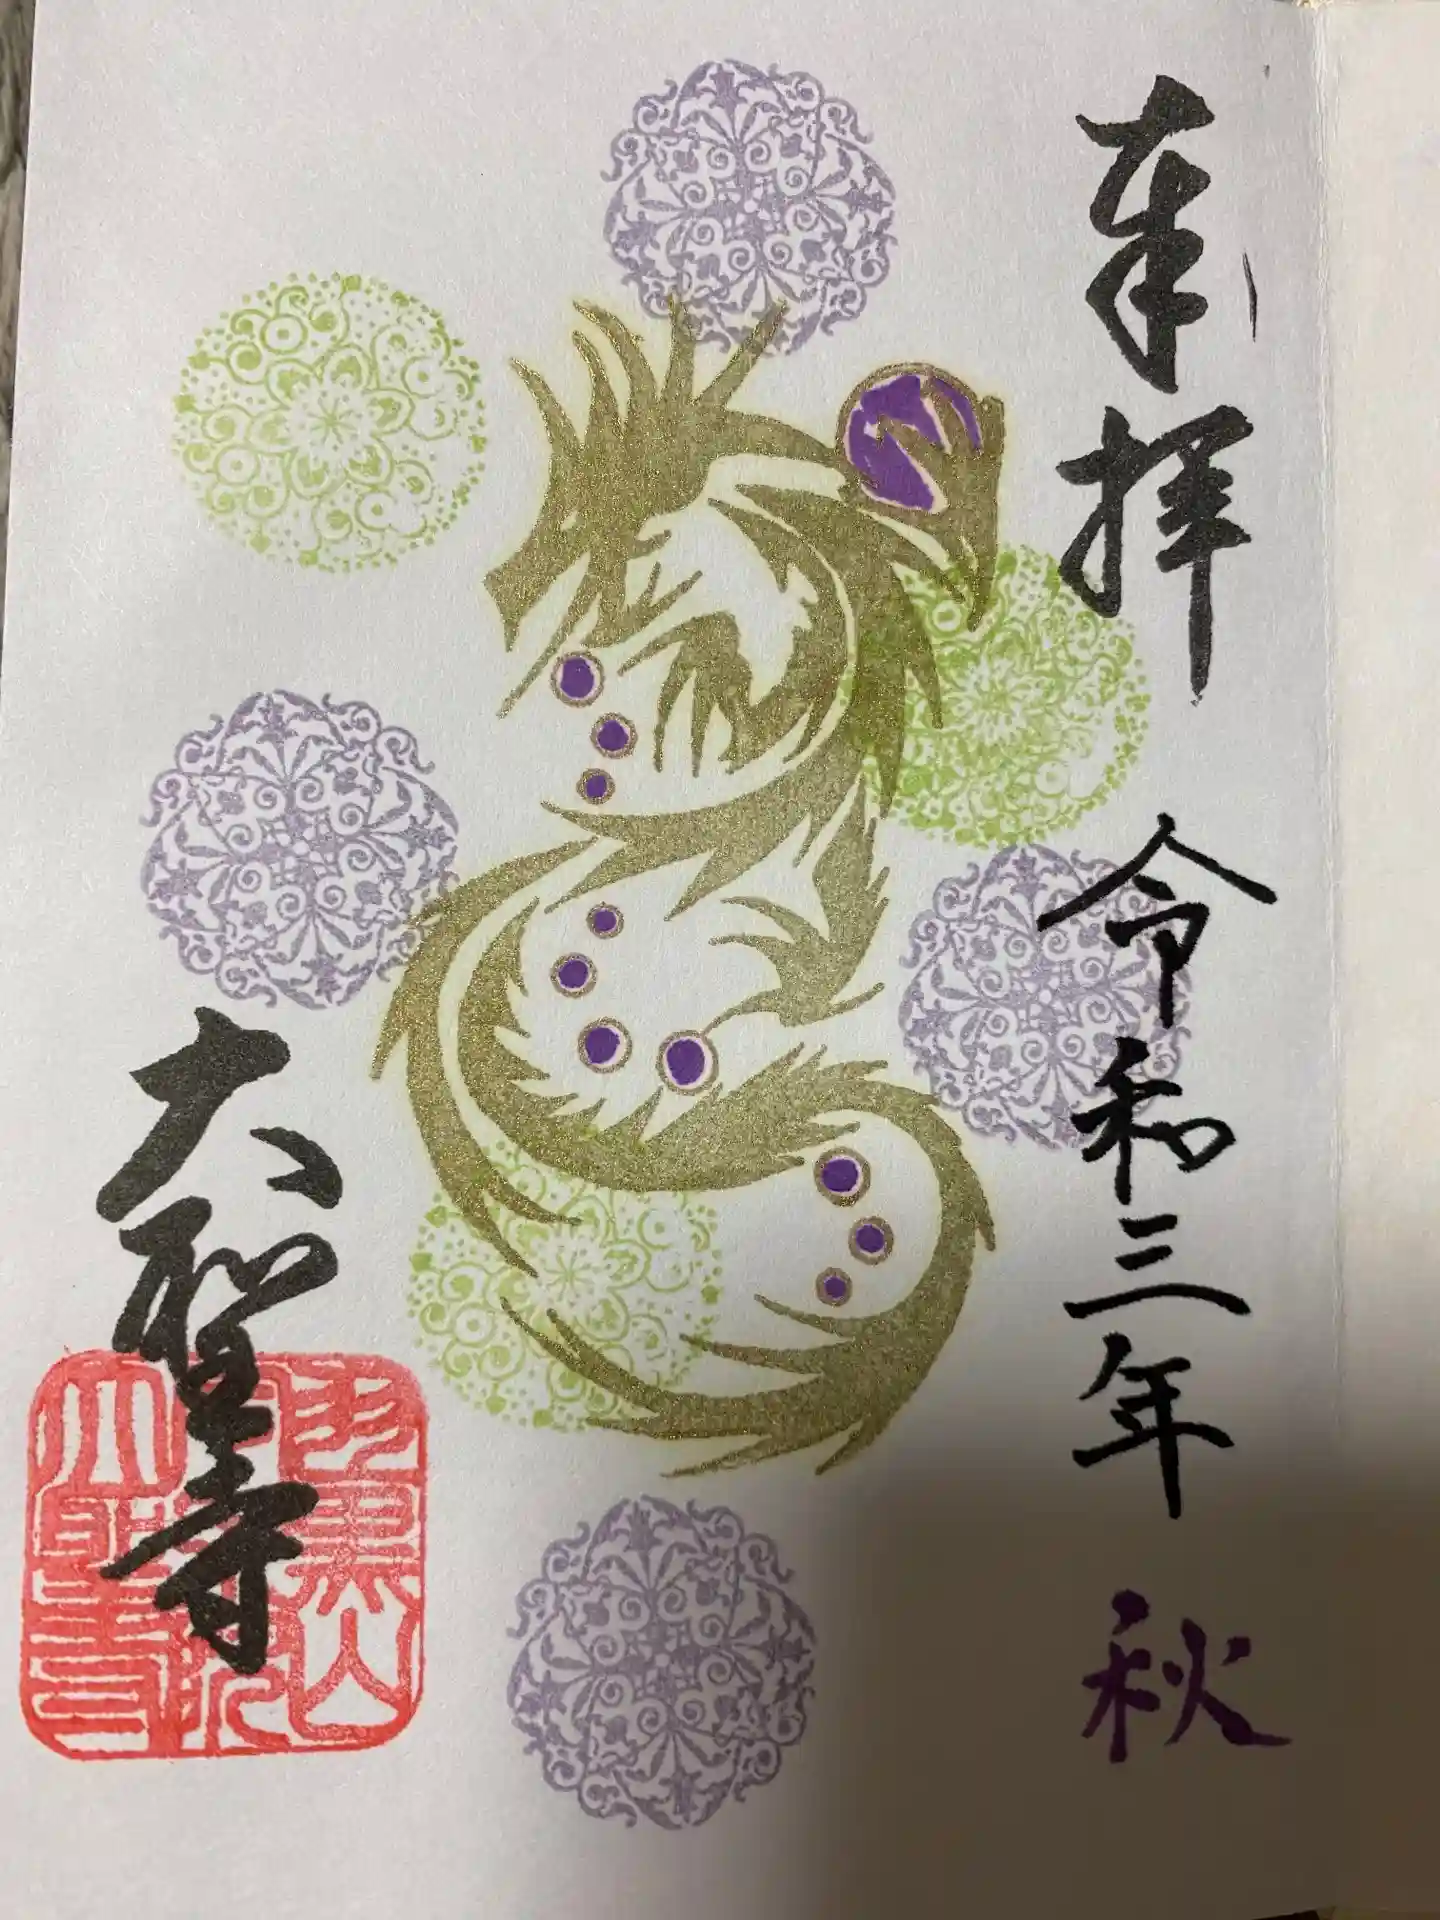 奉拝
令和三年
秋
大聖寺